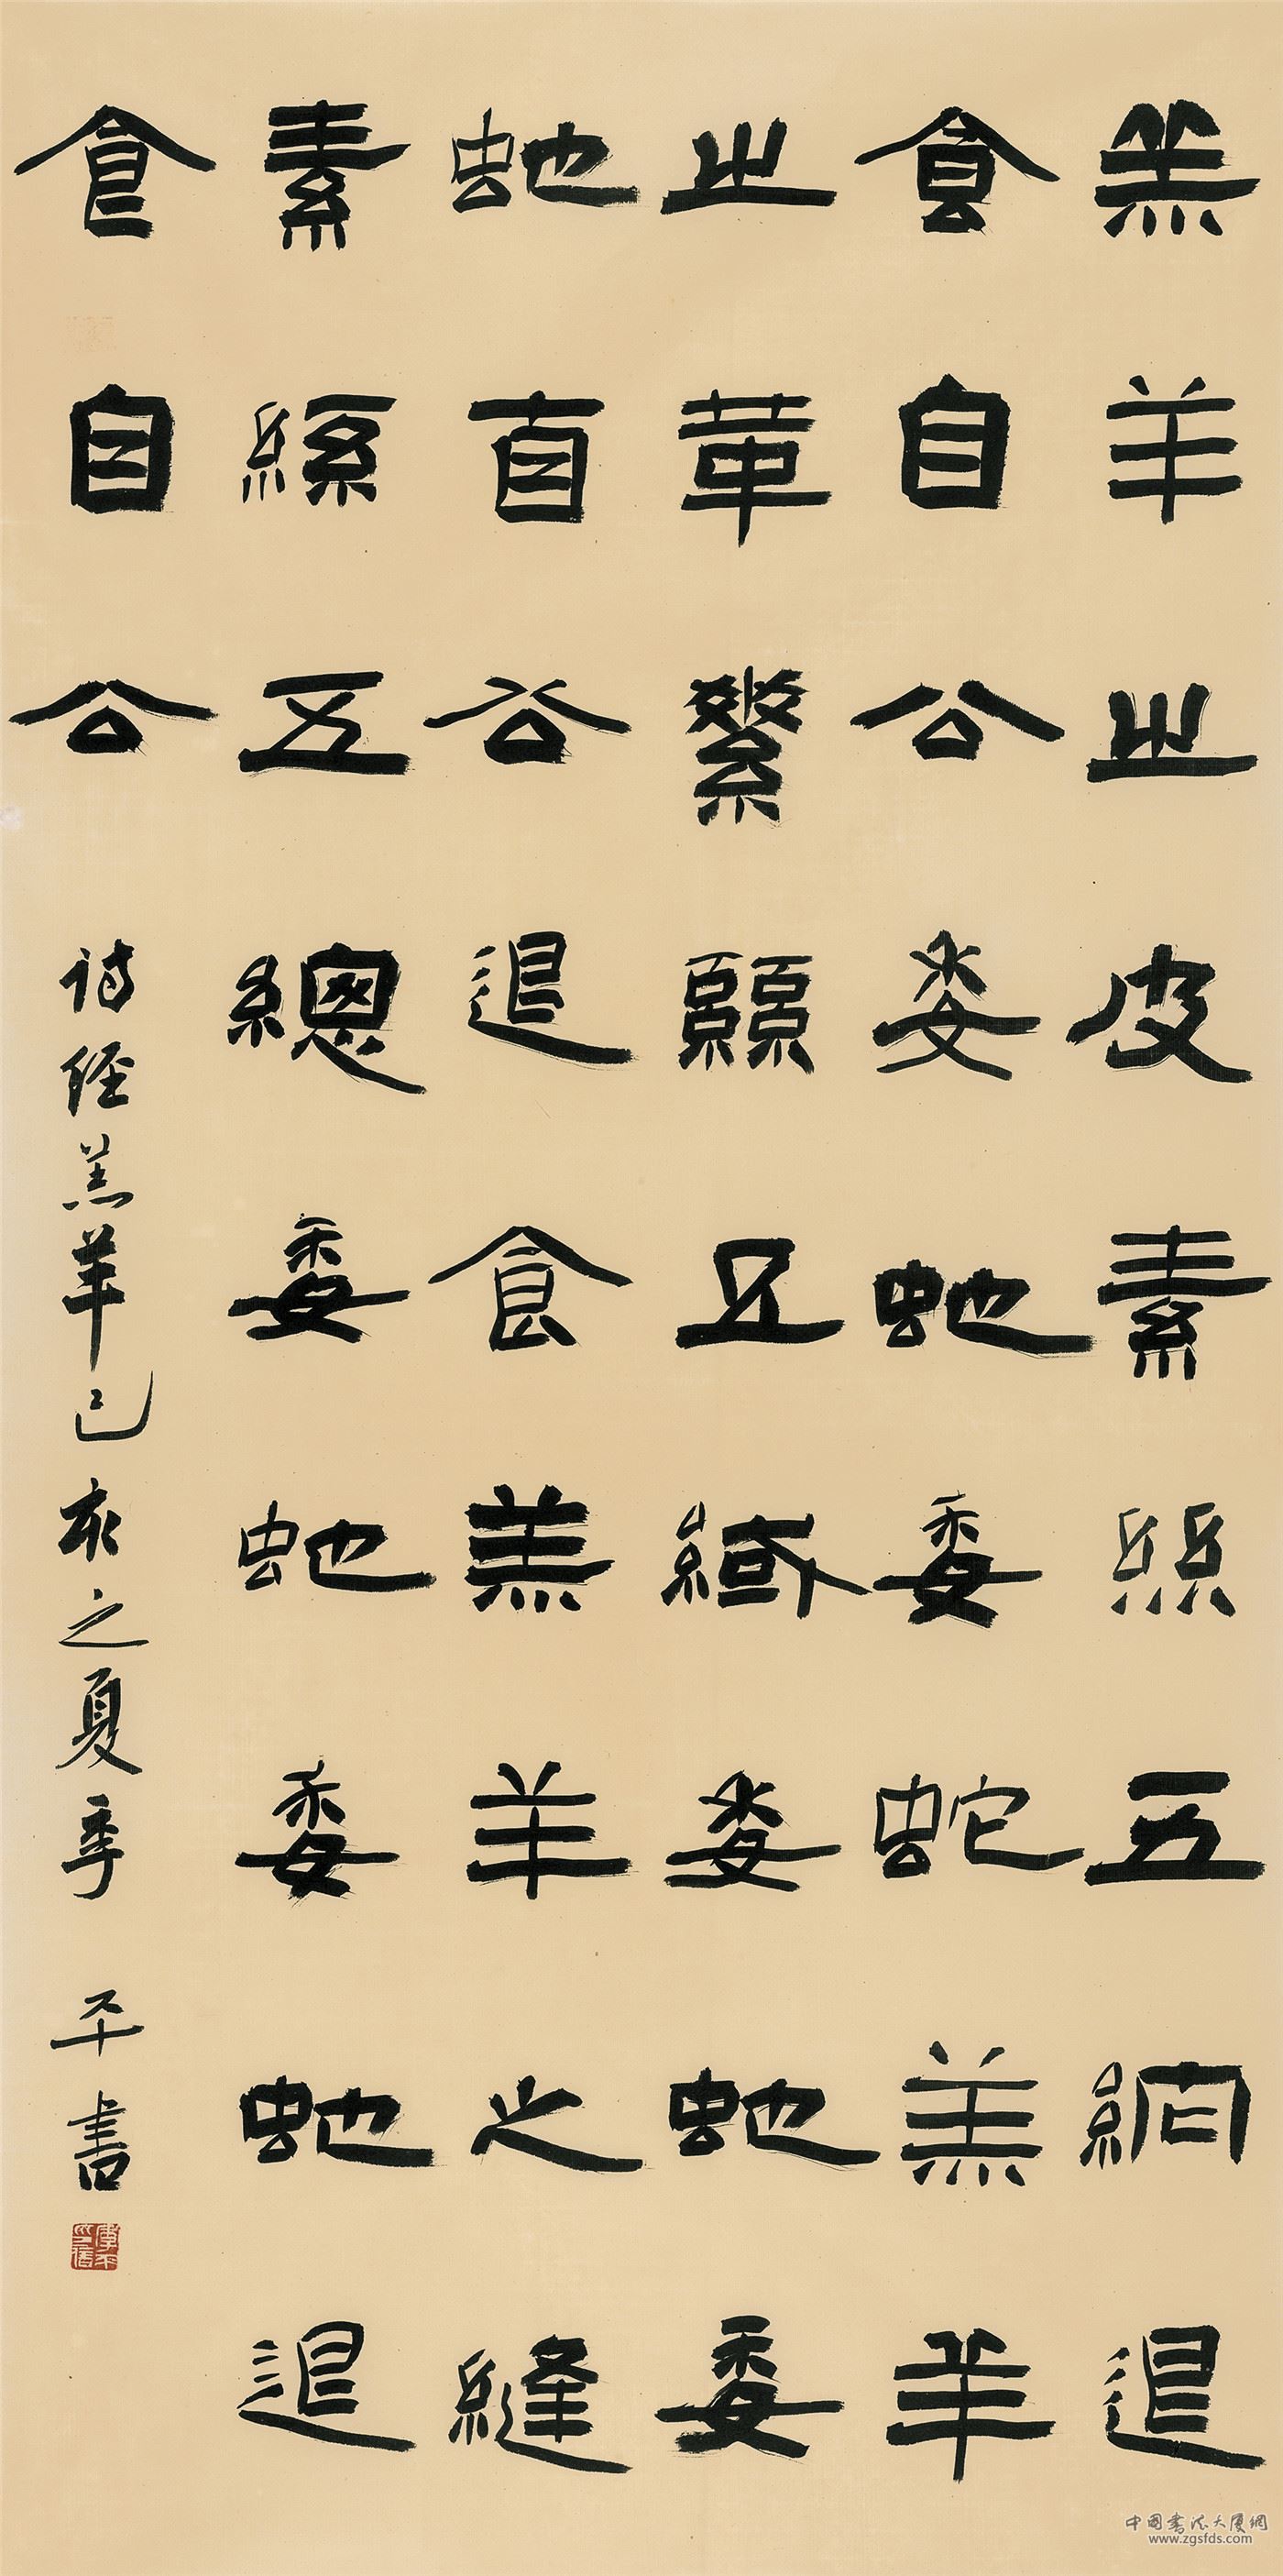 羔羊之皮素絲五退
食自公委虵委蛇羔羊
之革素絲五緎委虵委
虵自公退食羔羊之縫
素絲五總委虵委虵退
食自公
詩經羔羊己亥之夏季平書
中國書法大厦網
www.zgsfds.com